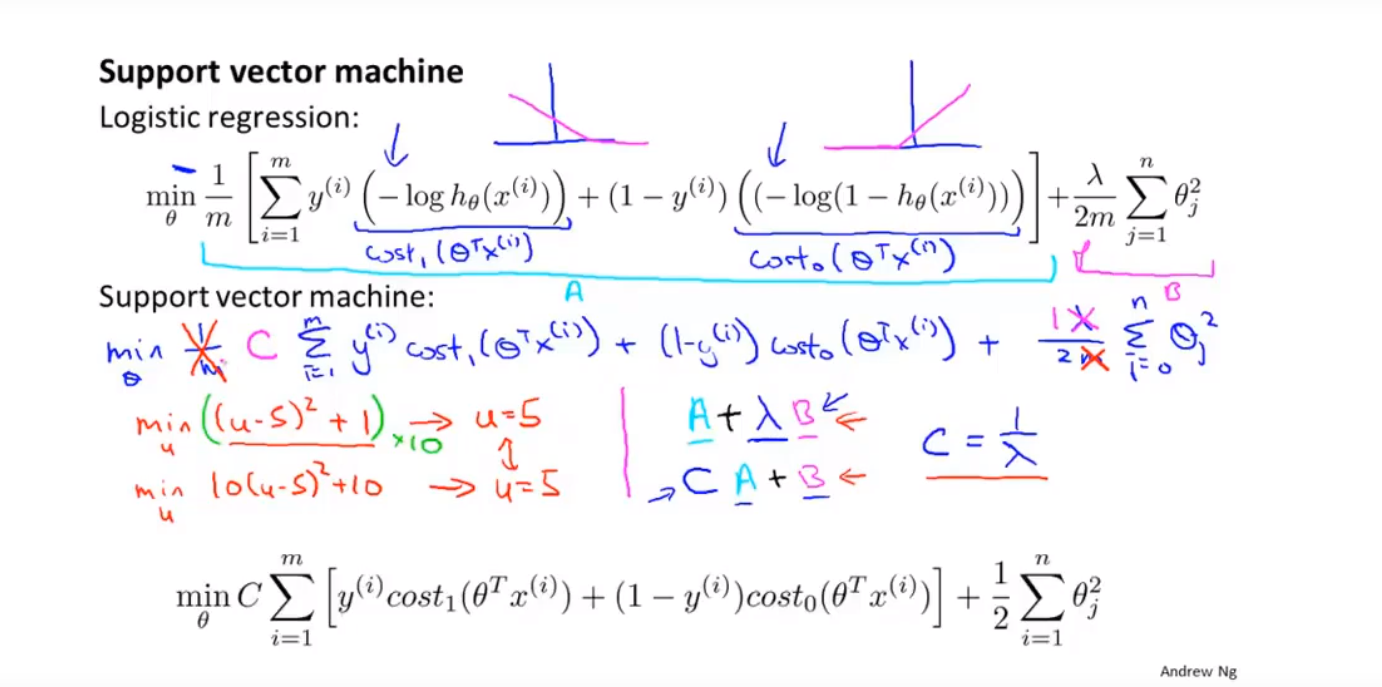 Support vector machine
Logistic regression:
min_θ 1/m [ Σ_{i=1}^{m} y^{(i)} (− log h_θ(x^{(i)})) + (1 − y^{(i)}) ((− log(1 − h_θ(x^{(i)}))) ] + λ/2m Σ_{j=1}^{n} θ_j^2
cost₁(θᵀx^{(i)}) cost₀(θᵀx^{(i)})
A B
Support vector machine:
min_θ 1/m C Σ_{i=1}^{m} y^{(i)} cost₁(θᵀx^{(i)}) + (1−y^{(i)}) cost₀(θᵀx^{(i)}) + 1 λ/2m Σ_{i=0}^{n} θ_j^2
min_u ((u−5)² + 1) ×10 → u=5
A + λ B ←
C = 1/λ
↕
min_u 10(u−5)²+10 → u=5
→ C A + B ←
min_θ C Σ_{i=1}^{m} [ y^{(i)} cost₁(θᵀx^{(i)}) + (1 − y^{(i)}) cost₀(θᵀx^{(i)}) ] + 1/2 Σ_{i=1}^{n} θ_j^2
Andrew Ng